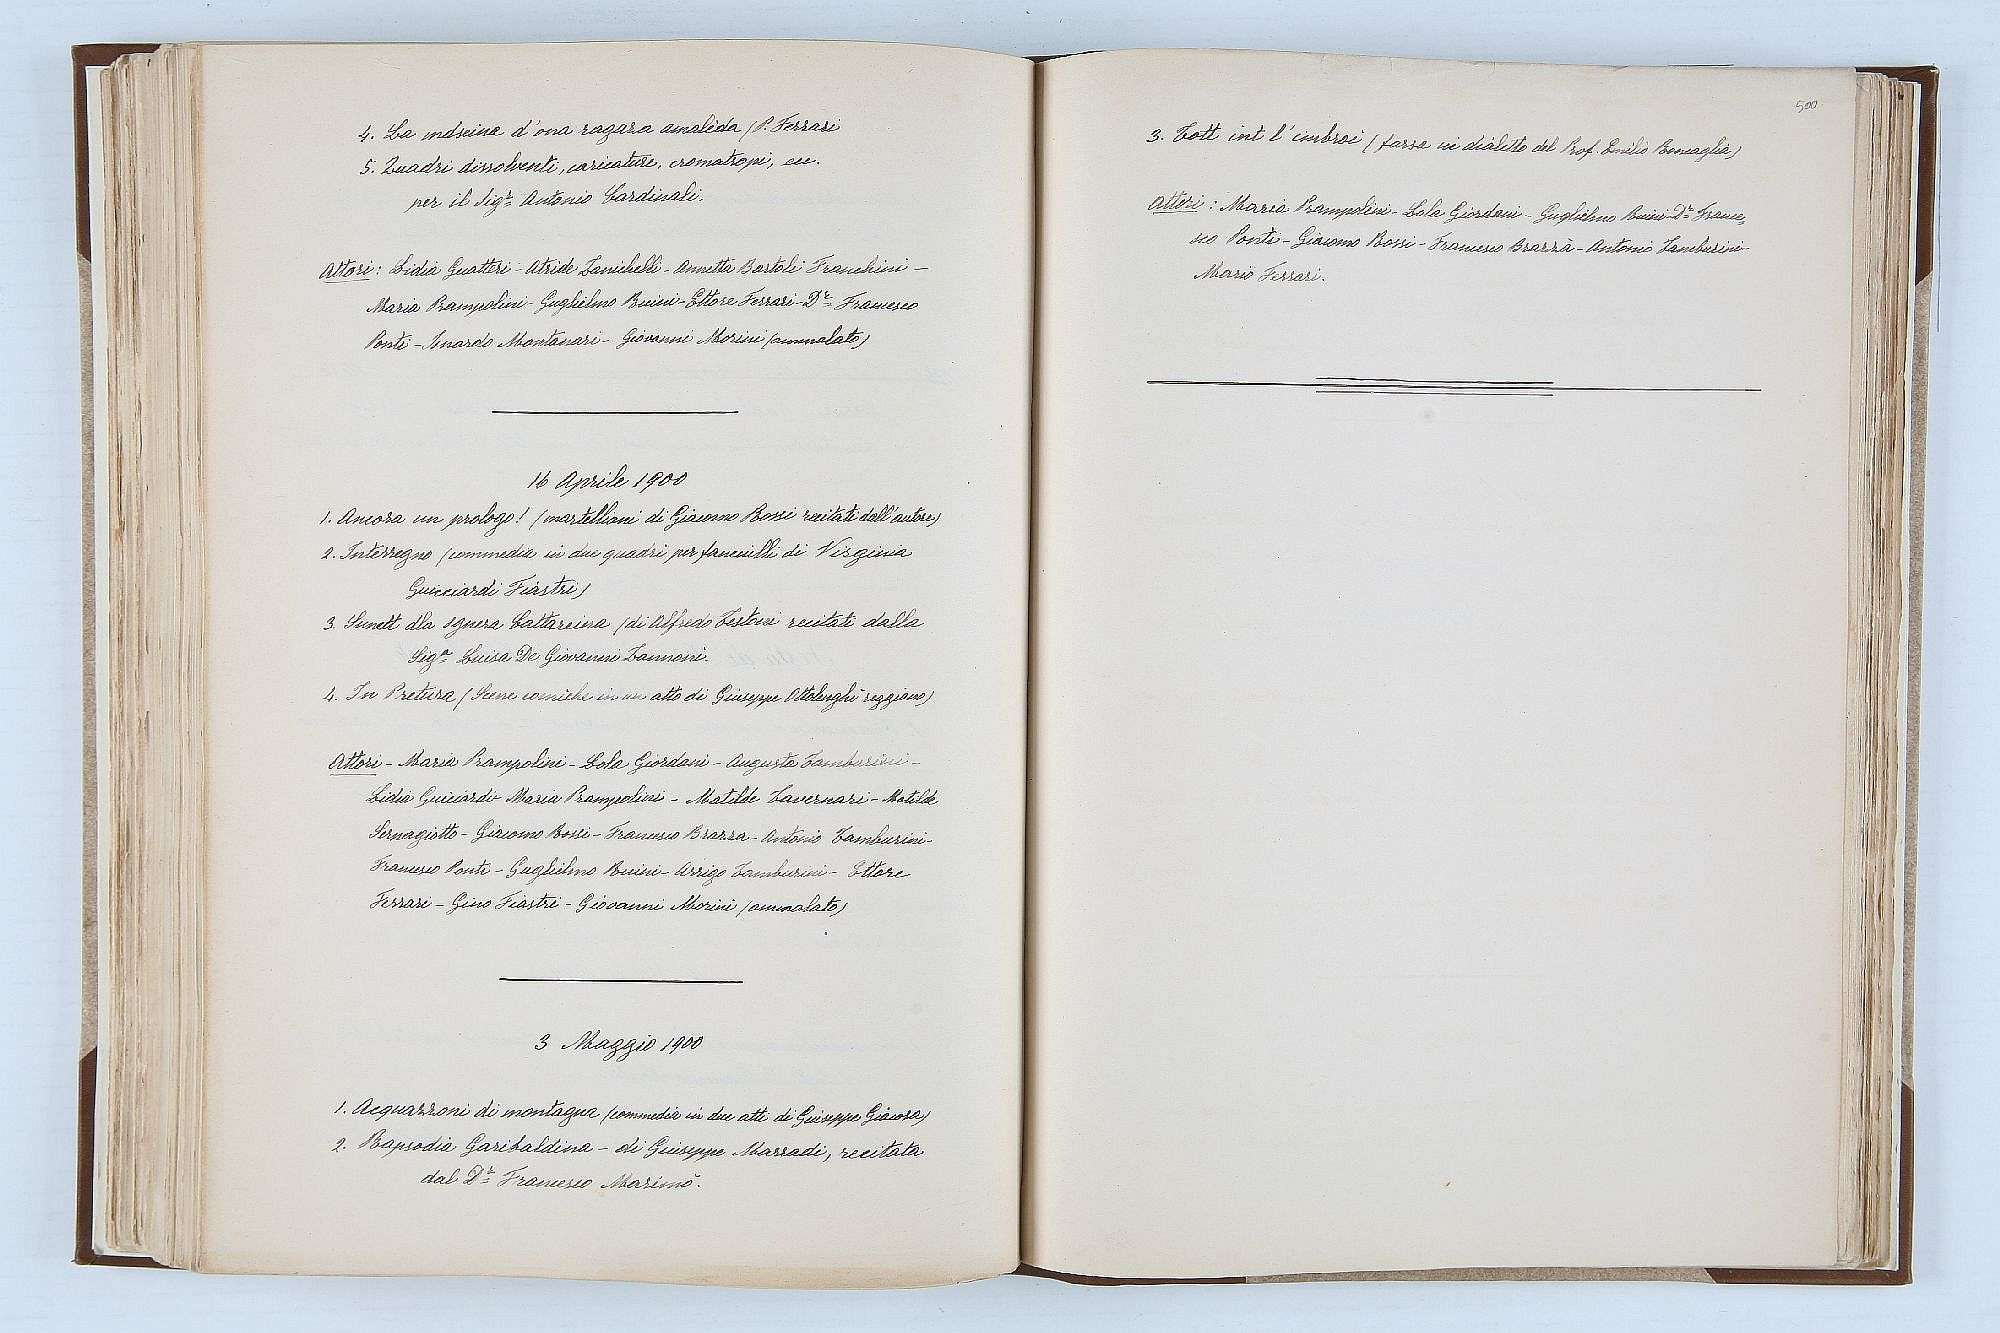 4. La mdseina d'ona ragaza amalèda (P. Ferrari
5. Quadri dissolventi, caricature, cromatropi, ecc.
per il Sigr. Antonio Cardinali.
Attori: Lidia Guatteri - Atride Zanichelli - Annetta Bartoli Franchini -
Maria Prampolini - Guglielmo Ruini - Ettore Ferrari - Dr. Francesco
Ponti - Inardo Montanari - Giovanni Morini (ammalato)
16 Aprile 1900
1. Ancora un prologo! (martelliani di Giacomo Rossi recitati dall'autore)
2. Interregno (commedia in due quadri per fanciulli di Virginia
Guicciardi Fiastri)
3. Sunett dla sgnera Cattareina (di Alfredo Testoni recitati dalla
Siga. Luisa De Giovanni Zannoni.
4. In Pretura (Scene comiche in un atto di Giuseppe Ottolenghi reggiano)
Attori - Maria Prampolini - Lola Giordani - Augusta Tamburini -
Lidia Guicciardi - Maria Prampolini - Matilde Tavernari - Matilde
Sernagiotto - Giacomo Rossi - Francesco Brazza - Antonio Tamburini -
Francesco Ponti - Guglielmo Ruini - Arrigo Tamburini - Ettore
Ferrari - Gino Fiastri - Giovanni Morini (ammalato)
3 Maggio 1900
1. Acquazzoni di montagna (commedia in due atti di Giuseppe Giacosa)
2. Rapsodia Garibaldina - di Giuseppe Marradi, recitata
dal Dr. Francesco Marimò.
500
3. Tott int l'imbroi (farsa in dialetto del Prof. Emilio Roncaglia)
Attori: Maria Prampolini - Lola Giordani - Guglielmo Ruini - Dr. France,
sco Ponti - Giacomo Rossi - Francesco Brazzà - Antonio Tamburini -
Mario Ferrari.